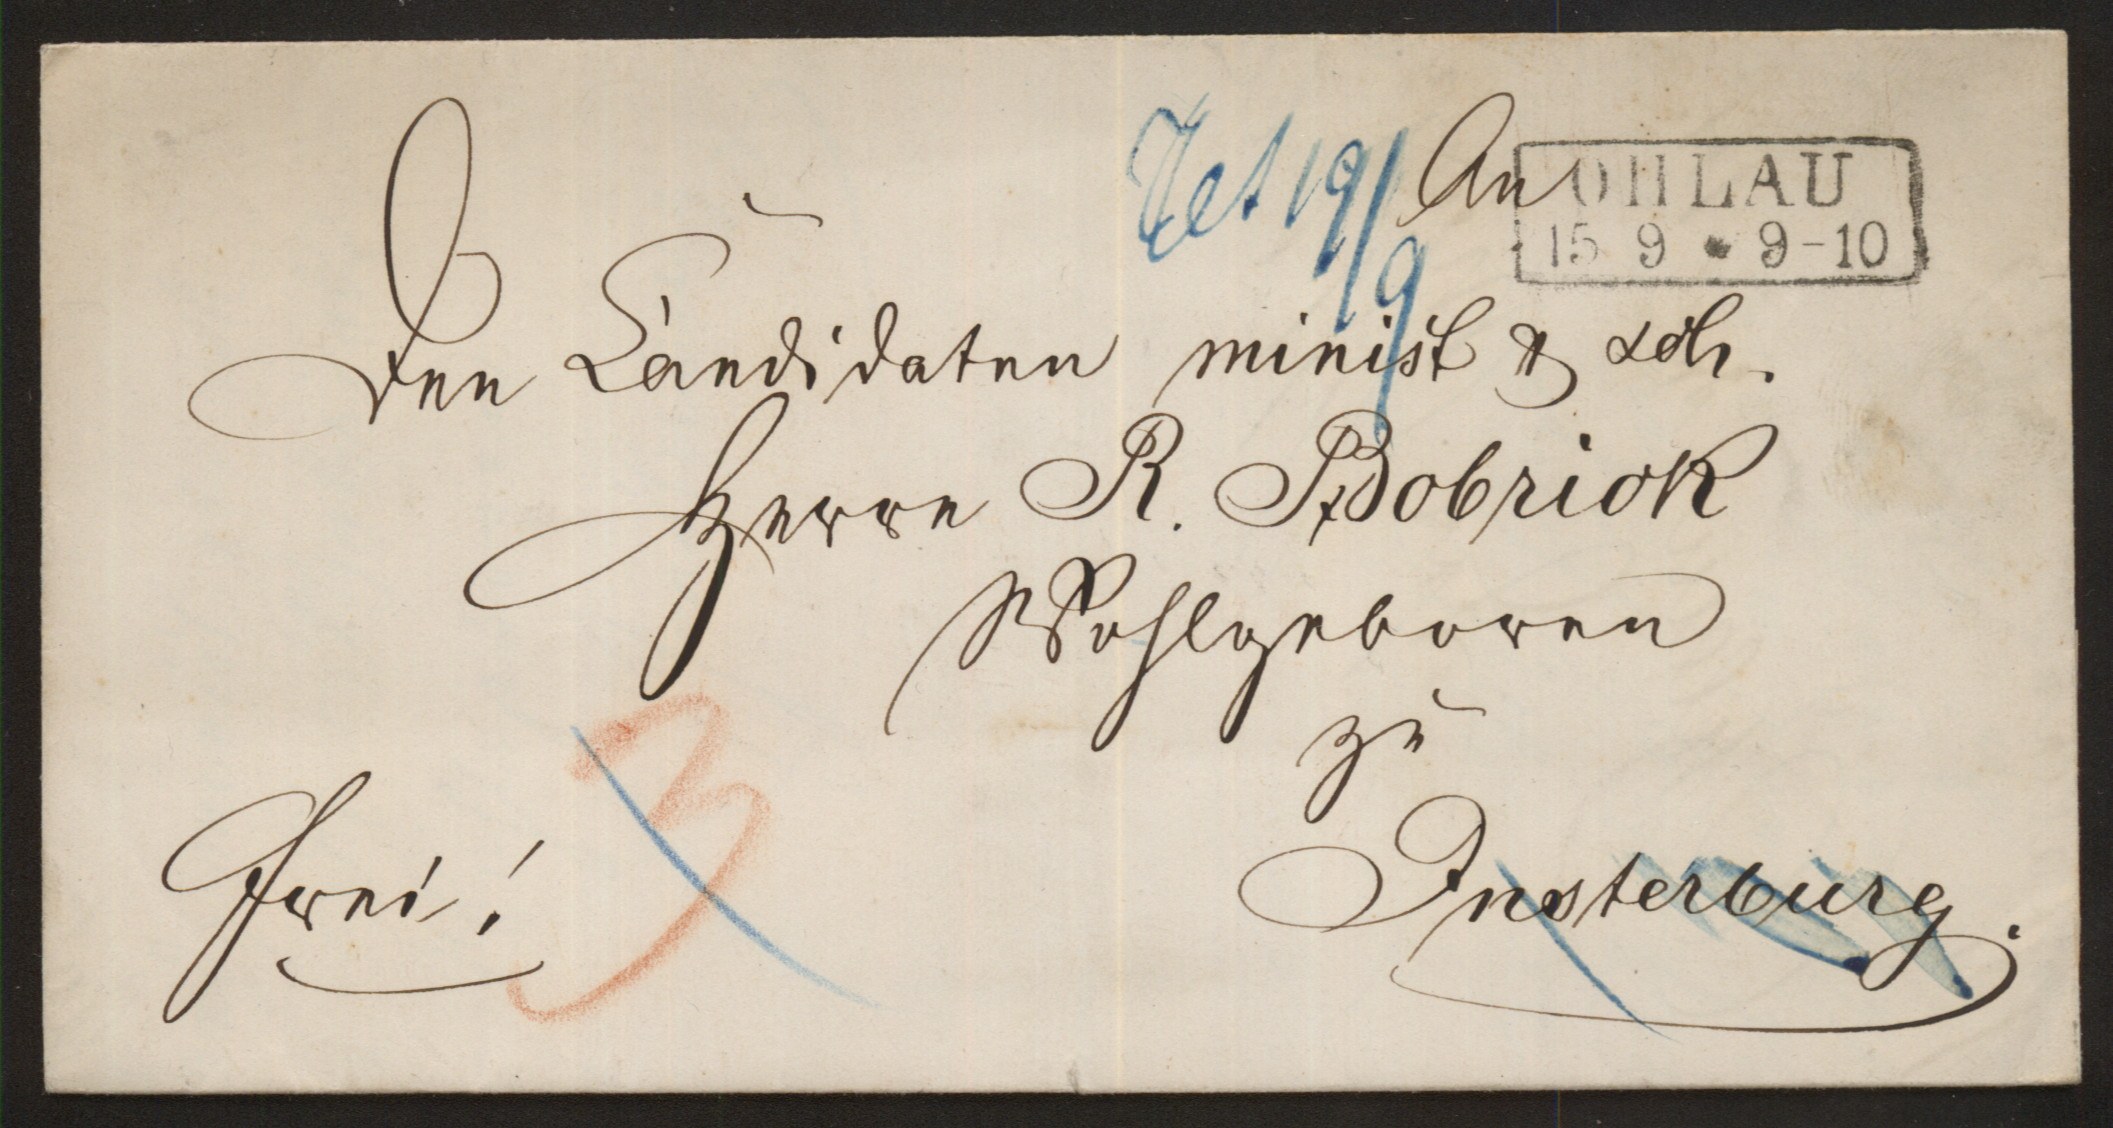 An
OHLAU
15 9 * 9-10
19/9
den Candidaten minist &
Herrn R. Bobrick
Wohlgeboren
zu
Insterburg.
frei!
3